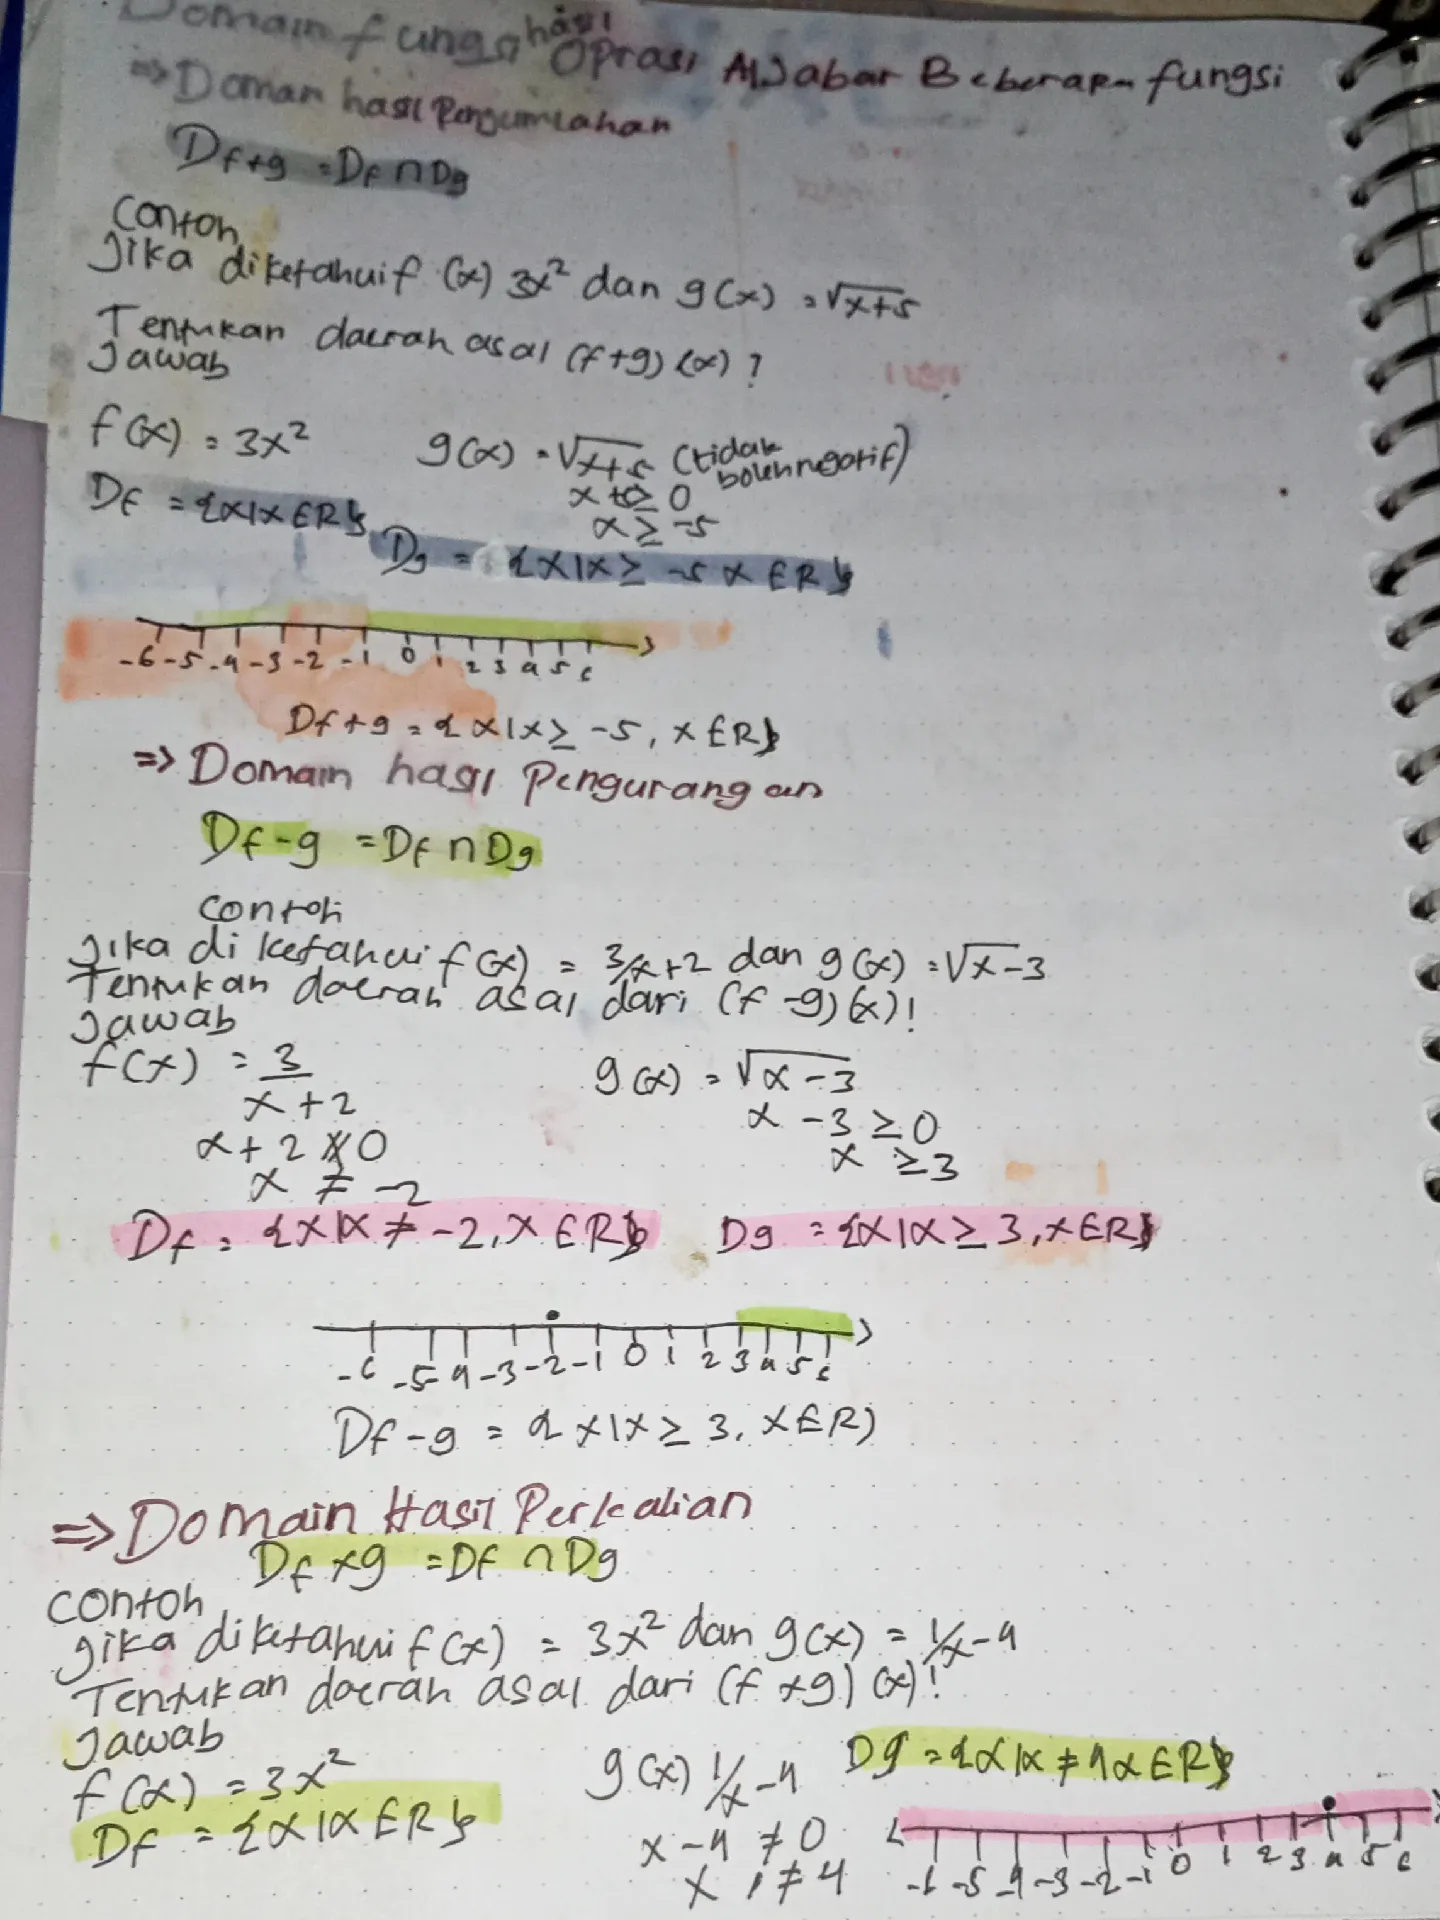 Domain fungsi hasil Oprasi AlJabar Beberapa fungsi
=> Doman hasil Penjumlahan
Df+g = Df ∩ Dg
Contoh
Jika diketahui f (x) 3x² dan g(x) = √x+5
Tentukan daerah asal (f+g) (x) ?
Jawab
f(x) = 3x² g(x) = √x+5 (tidak boleh negatif)
x+5 ≥ 0
x ≥ -5
Df = {x|x ∈ R}
Dg = {x|x ≥ -5 x ∈ R}
-6 -5 -4 -3 -2 -1 0 1 2 3 4 5 6
Df+g = {x|x ≥ -5, x ∈ R}
=> Domain hasil Pengurangan
Df-g = Df ∩ Dg
Contoh
Jika di ketahui f(x) = 3/x+2 dan g(x) = √x-3
Tentukan daerah asal dari (f-g)(x)!
Jawab
f(x) = 3/x+2 g(x) = √x-3
x+2 ≠ 0 x-3 ≥ 0
x ≠ -2 x ≥ 3
Df = {x|x ≠ -2, x ∈ R} Dg = {x|x ≥ 3, x ∈ R}
-6 -5 -4 -3 -2 -1 0 1 2 3 4 5 6
Df-g = {x|x ≥ 3, x ∈ R)
=> Domain Hasil Perkalian
Df×g = Df ∩ Dg
Contoh
Jika diketahui f(x) = 3x² dan g(x) = 1/x-4
Tentukan daerah asal dari (f×g) (x)!
Jawab
f(x) = 3x² g(x) 1/x-4 Dg = {x|x ≠ 4 x ∈ R}
Df = {x|x ∈ R} x-4 ≠ 0
x ≠ 4
-6 -5 -4 -3 -2 -1 0 1 2 3 4 5 6